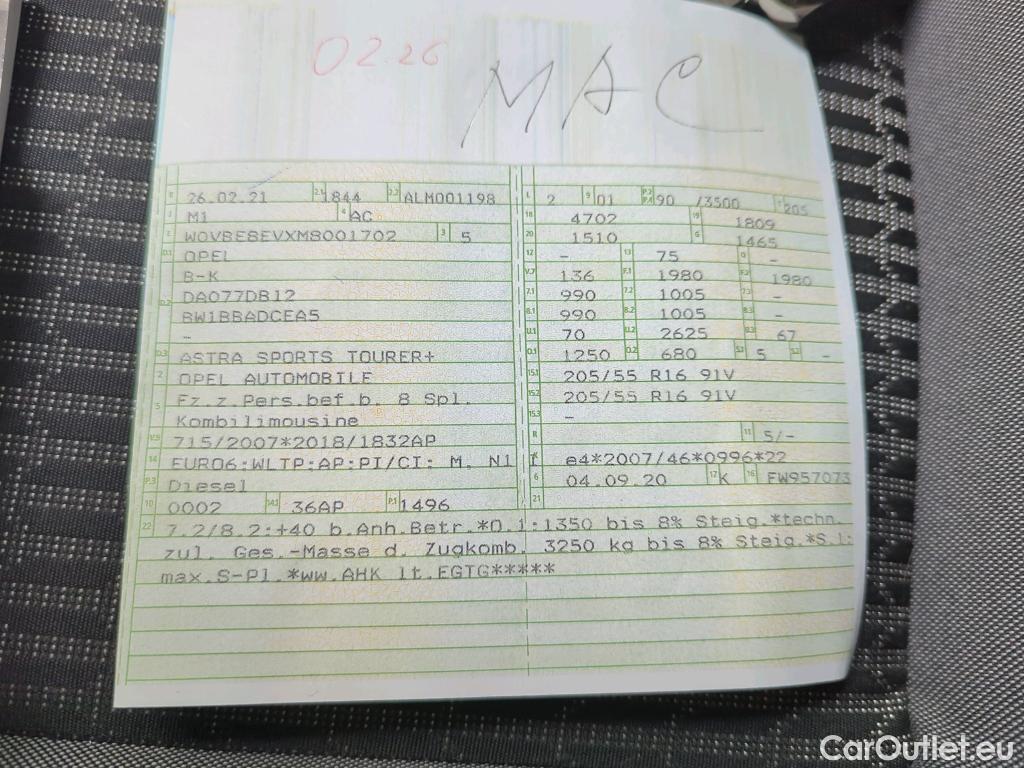 02.26
MAC
B 26.02.21 2.1 1844 2.2 ALM001198
J M1 4 AC
E W0VBE8EVXM8001702 3 5
D.1 OPEL
B-K
D.2 DA077DB12
BW1BBADCEA5
-
D.3 ASTRA SPORTS TOURER+
2 OPEL AUTOMOBILE
5 Fz.z.Pers.bef.b. 8 Spl.
Kombilimousine
V.9 715/2007*2018/1832AP
14 EURO6;WLTP;AP;PI/CI; M, N1 I
P.3 Diesel
10 0002 14.1 36AP P.1 1496
L 2 9 01 P.2 P.4 90 /3500 T 205
18 4702 19 1809
20 1510 G 1465
12 - 13 75 Q -
V.7 136 F.1 1980 F.2 1980
7.1 990 7.2 1005 7.3 -
8.1 990 8.2 1005 8.3 -
U.1 70 U.2 2625 U.3 67
O.1 1250 O.2 680 S.1 5 S.2 -
15.1 205/55 R16 91V
15.2 205/55 R16 91V
15.3 -
R 11 5/-
K e4*2007/46*0996*22
6 04.09.20 17 K 16 FW957073
21
22 7.2/8.2:+40 b.Anh.Betr.*O.1:1350 bis 8% Steig.*techn.
zul. Ges.-Masse d. Zugkomb. 3250 kg bis 8% Steig.*S.1:
max.S-Pl.*ww.AHK lt.EGTG*****
CarOutlet.eu